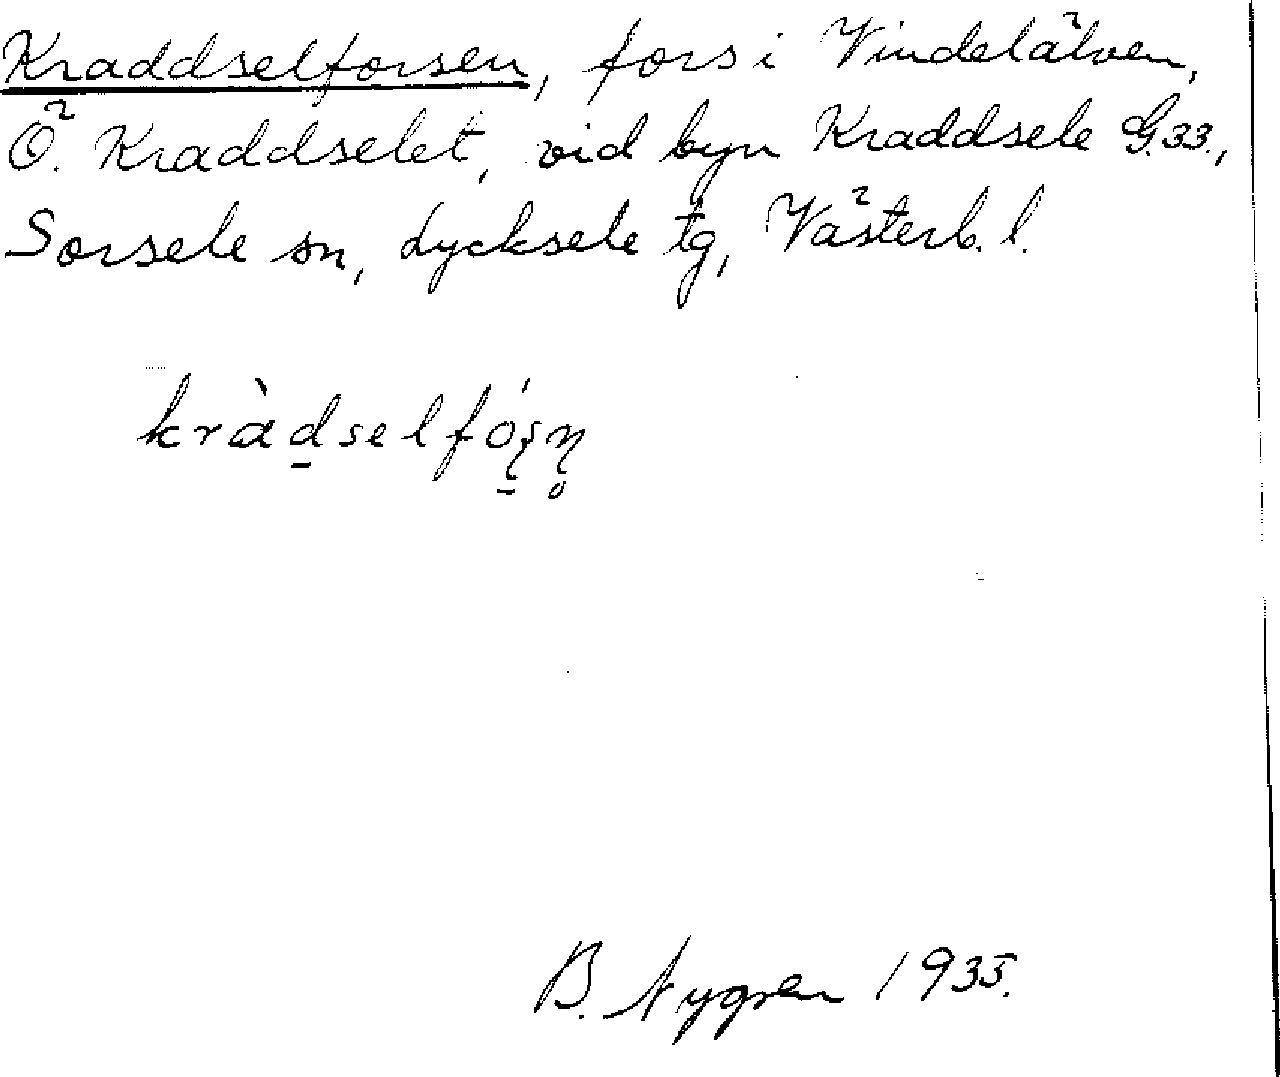 Kraddselforsen, fors i Vindelälven,
Ö. Kraddselet, vid byn Kraddsele G.33.,
Sorsele sn, Lycksele tg, Västerb. l.
kràd̠selfó̠ʂn̥
B. Nygren 1935.